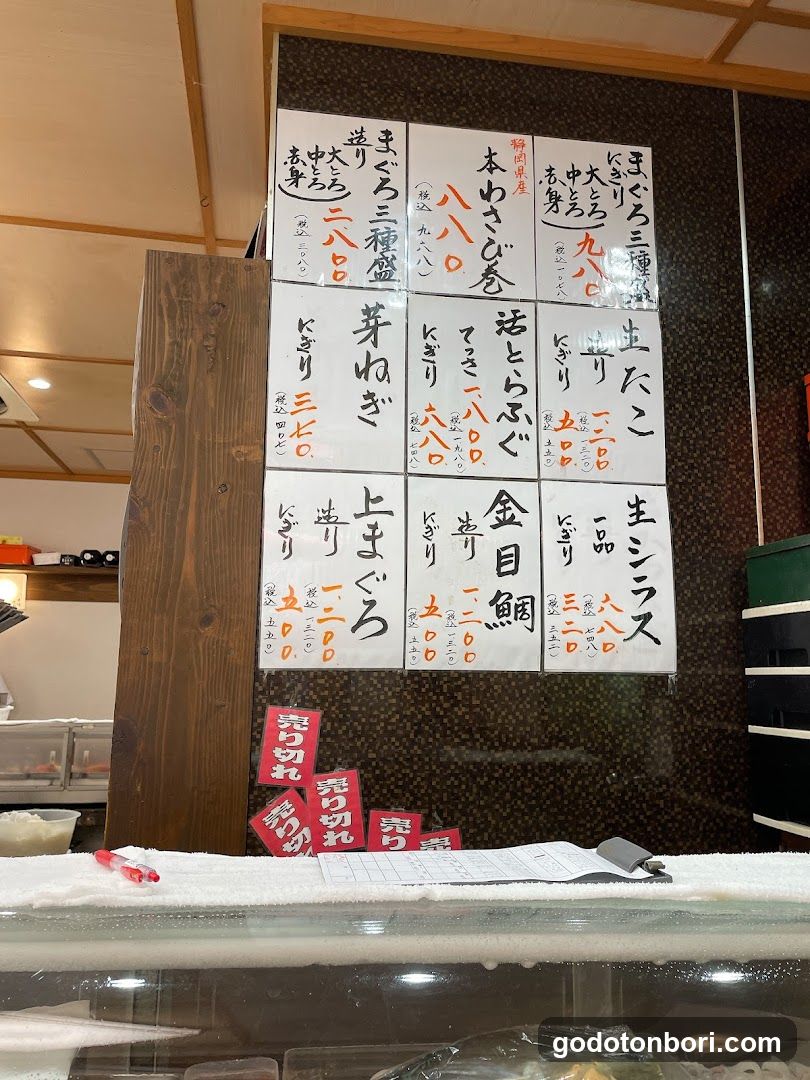 まぐろ三種盛
にぎり
大とろ
中とろ
赤身
九八〇
(税込 一〇七八)
静岡県産
本わさび巻
八八〇
(税込 九六八)
まぐろ三種盛
造り
大とろ
中とろ
赤身
二、八〇〇
(税込 三〇八〇)
生たこ
造り 一、二〇〇
(税込 一三二〇)
にぎり 五〇〇
(税込 五五〇)
活とらふぐ
てっさ 一、八〇〇
(税込 一九八〇)
にぎり 六八〇
(税込 七四八)
芽ねぎ
にぎり 三七〇
(税込 四〇七)
生シラス
一品 六八〇
(税込 七四八)
にぎり 三二〇
(税込 三五二)
金目鯛
造り 一、二〇〇
(税込 一三二〇)
にぎり 五〇〇
(税込 五五〇)
上まぐろ
造り 一、二〇〇
(税込 一三二〇)
にぎり 五〇〇
(税込 五五〇)
売り切れ
売り切れ
売り切れ
売り切
売
godotonbori.com